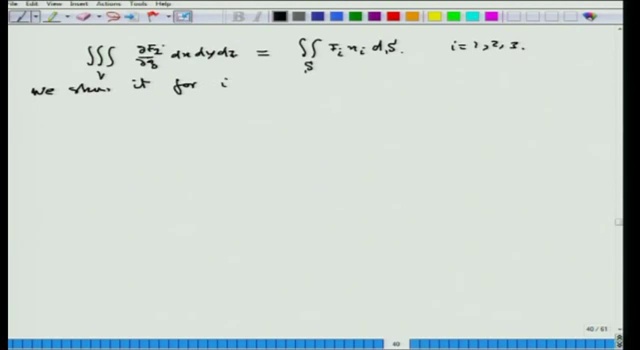 File Edit View Insert Actions Tools Help
∭_V ∂F_i/∂x_i dx dy dz = ∬_S F_i n_i dS. i = 1, 2, 3.
we show it for i
40 / 61
40